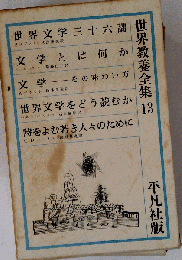 世界教養全集 13
世界文学三十六講
文学とは何か
文学―その味わい方
世界文学をどう読むか
詩をよむ若き人々のために
平凡社版